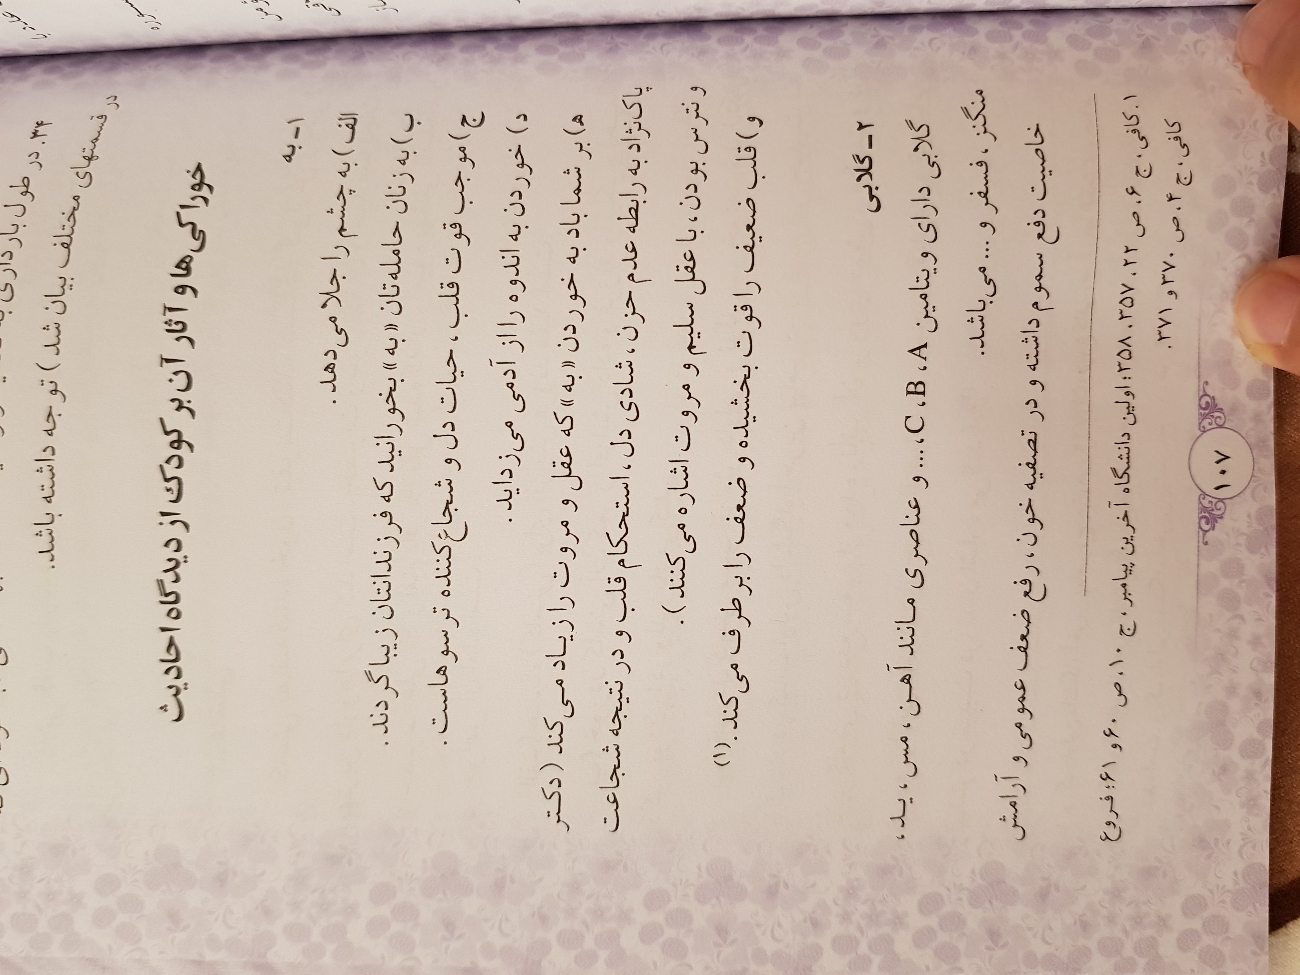 ۳۴. در طول بارداری به
در قسمتهای مختلف بیان شد) توجه داشته باشد.
خوراکی‌ها و آثار آن بر کودک از دیدگاه احادیث
۱ـ به
الف) به چشم را جلا می‌دهد.
ب) به زنان حامله‌تان «به» بخورانید که فرزندانتان زیبا گردند.
ج) موجب قوت قلب، حیات دل و شجاع‌کننده ترسوهاست.
د) خوردن به اندوه را از آدمی می‌زداید.
ه) بر شما باد به خوردن «به» که عقل و مروت را زیاد می‌کند (دکتر
پاک‌نژاد به رابطه عدم حزن، شادی دل، استحکام قلب و در نتیجه شجاعت
و نترس بودن، با عقل سلیم و مروت اشاره می‌کنند).
و) قلب ضعیف را قوت بخشیده و ضعف را بر طرف می‌کند.(۱)
۲ـ گلابی
گلابی دارای ویتامین C، B، A،... و عناصری مانند آهن، مس، ید،
منگنز، فسفر و... می‌باشد.
خاصیت دفع سموم داشته و در تصفیه خون، رفع ضعف عمومی و آرامش
۱. کافی، ج ۶، ص ۲۲، ۳۵۷، ۳۵۸؛ اولین دانشگاه آخرین پیامبر، ج ۱۰، ص ۶۰ و ۶۱؛ فروع
کافی، ج ۴، ص ۳۷۰ و ۳۷۱.
۱۰۷